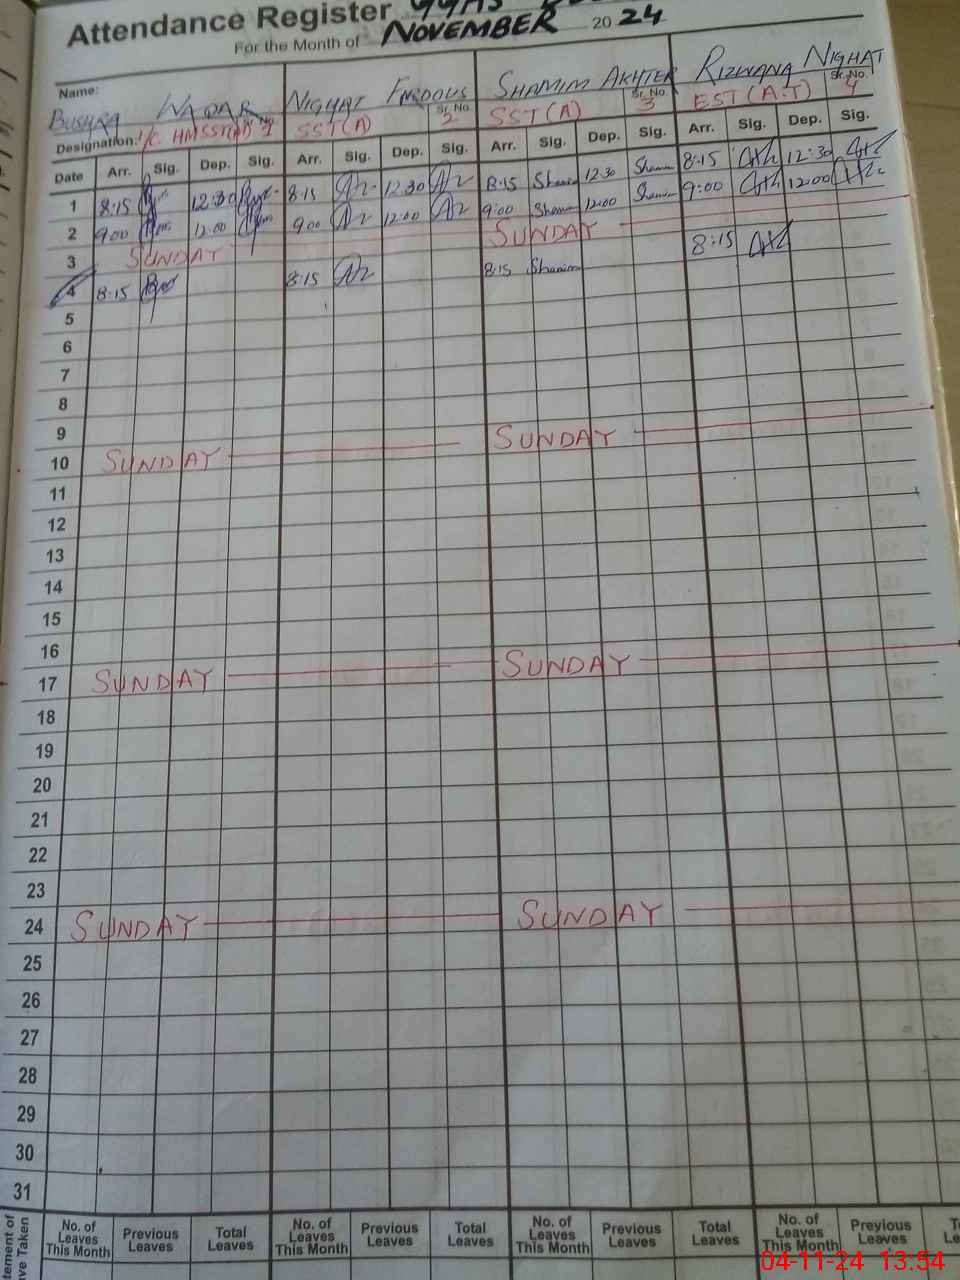 Attendance Register GGHS
For the Month of NOVEMBER 20 24
Name: BUSHRA WAQAR NIGHAT FIRDOUS SHAMIM AKHTER RIZWANA NIGHAT
Designation: I/C HMSST(A) Sr. No. 1 SST(A) Sr. No. 2 SST(A) Sr. No. 3 EST(A.T) Sr. No. 4
Date Arr. Sig. Dep. Sig. Arr. Sig. Dep. Sig. Arr. Sig. Dep. Sig. Arr. Sig. Dep. Sig.
1 8:15 12:30 8:15 12:30 8:15 Shamim 12:30 Shamim 8:15 12:30
2 9:00 12:00 9:00 12:00 9:00 Shamim 12:00 Shamim 9:00 12:00
3 SUNDAY SUNDAY
4 8:15 8:15 8:15 Shamim 8:15
5
6
7
8
9
10 SUNDAY SUNDAY
11
12
13
14
15
16
17 SUNDAY SUNDAY
18
19
20
21
22
23
24 SUNDAY SUNDAY
25
26
27
28
29
30
31
tement of
ve Taken
No. of Leaves This Month Previous Leaves Total Leaves No. of Leaves This Month Previous Leaves Total Leaves No. of Leaves This Month Previous Leaves Total Leaves No. of Leaves This Month Previous Leaves
04-11-24 13:54